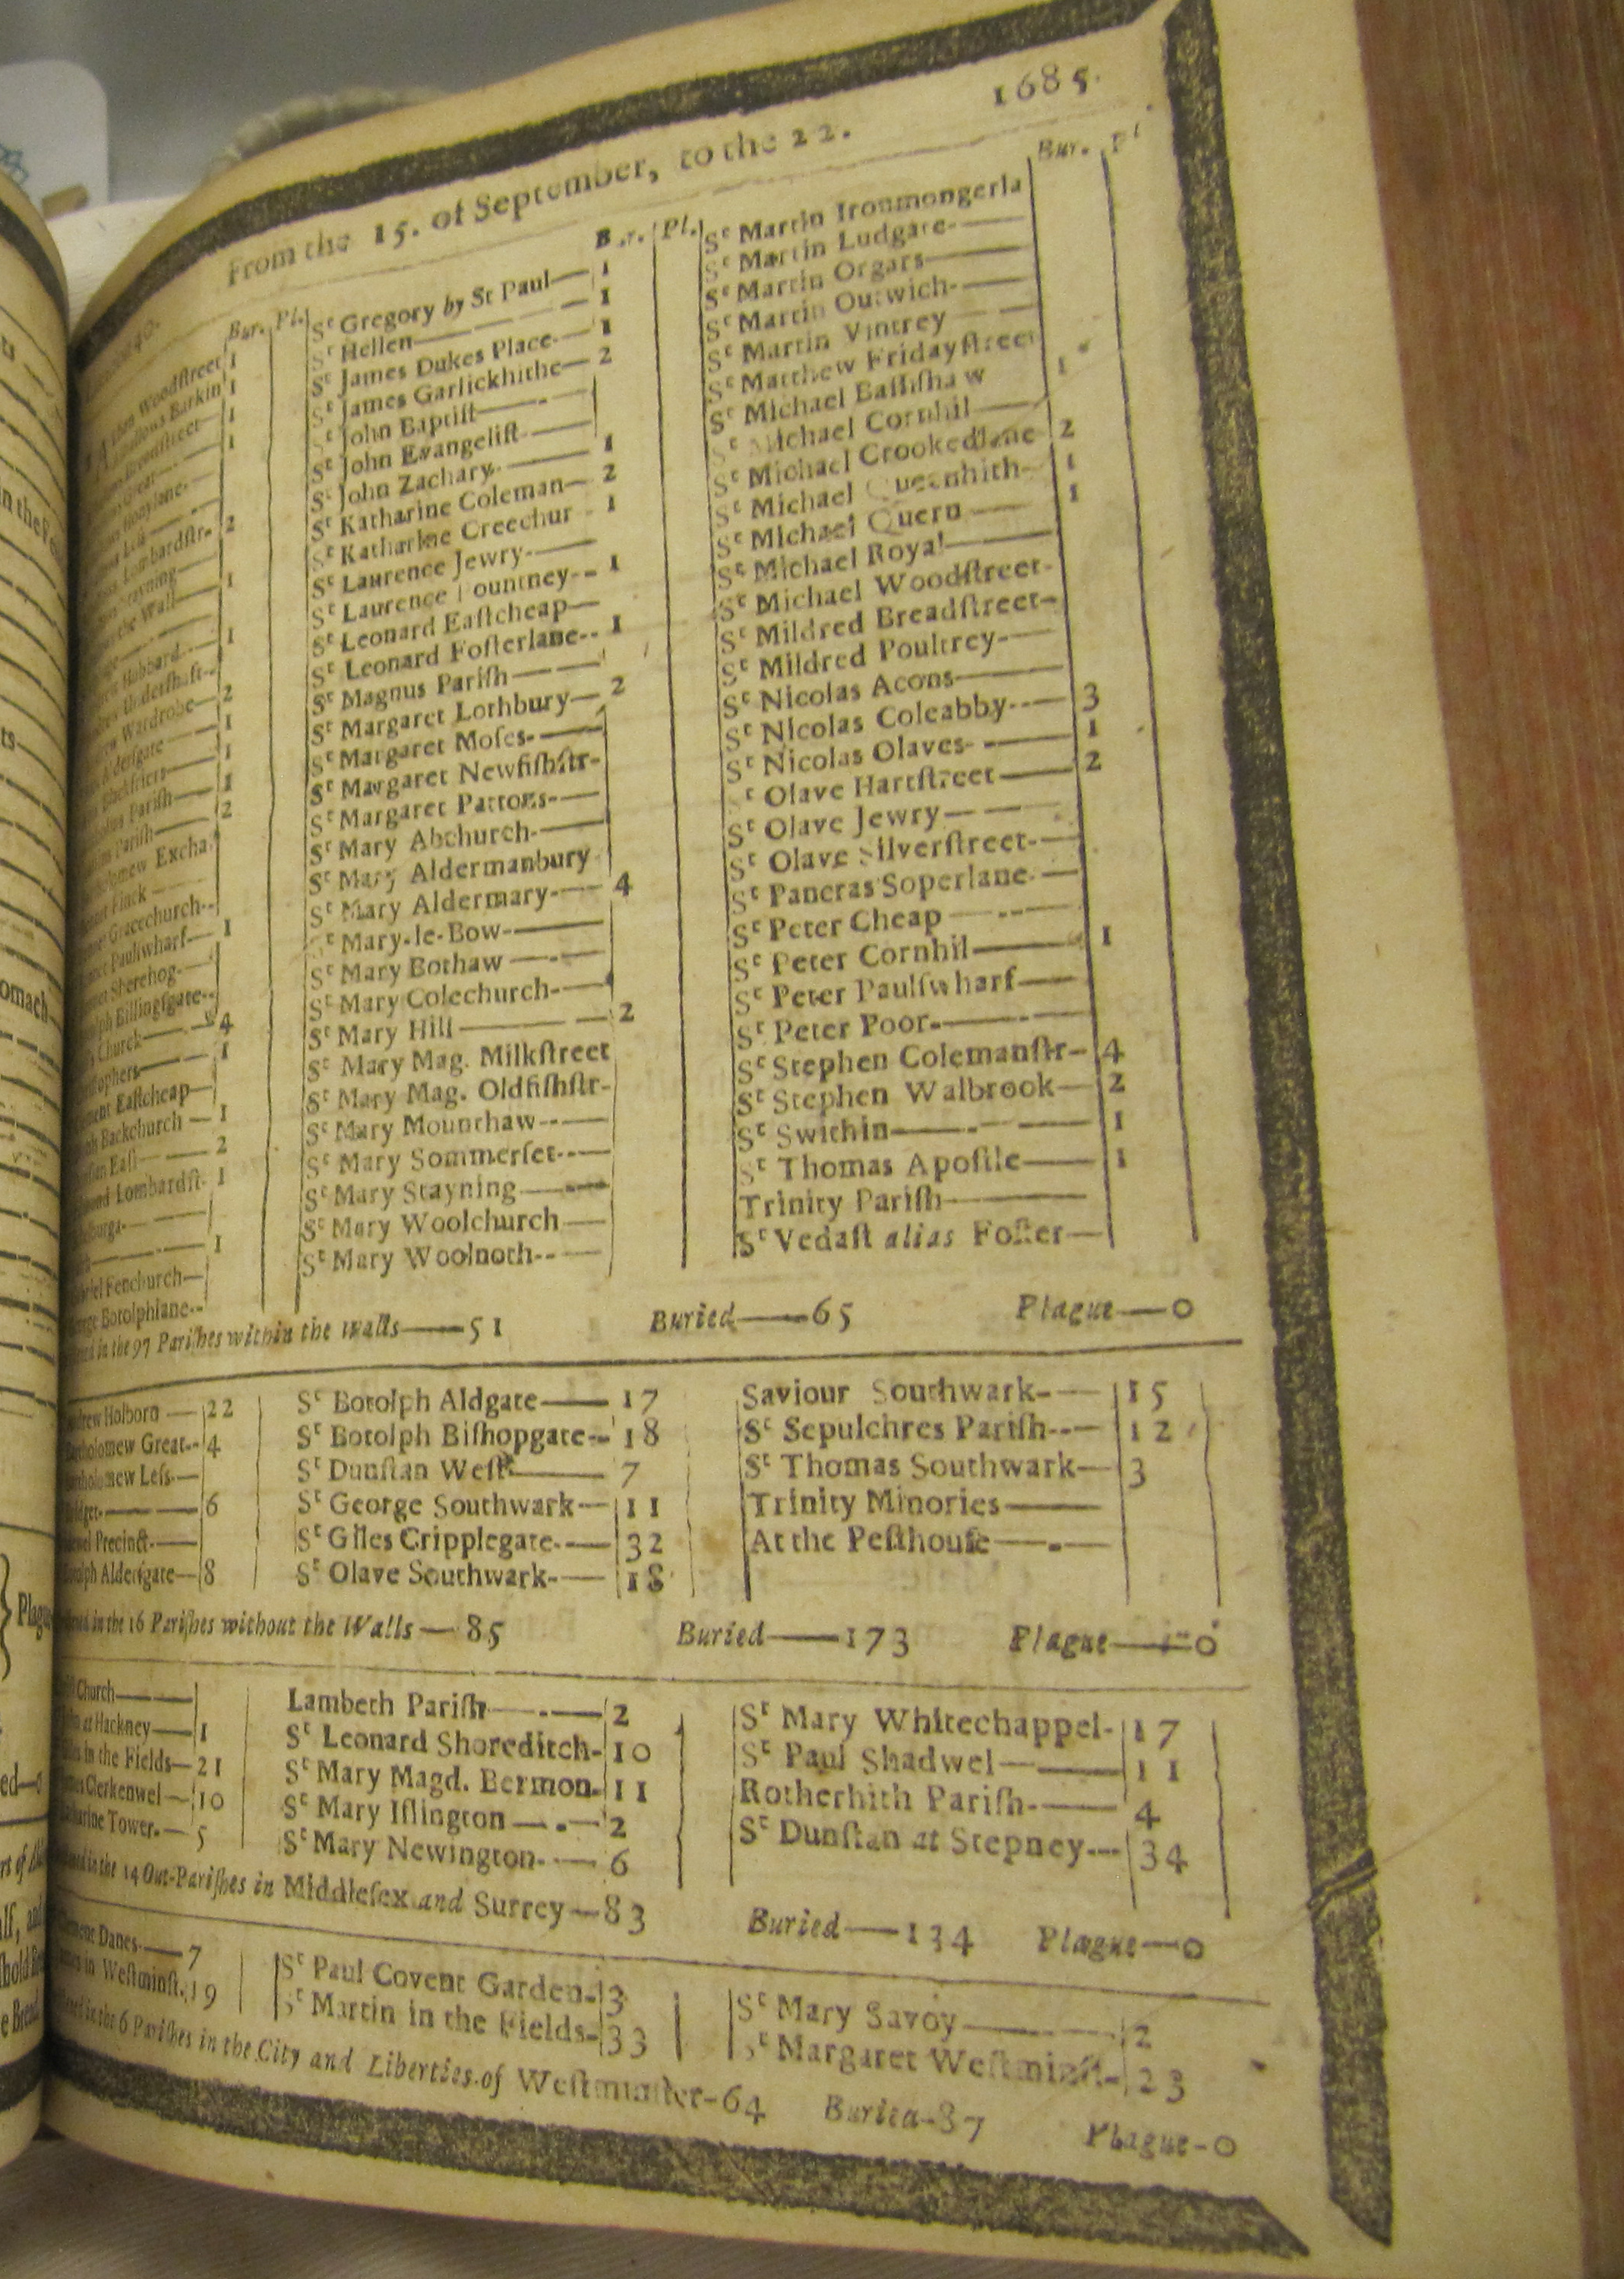 1685.
From the 15. of September, to the 22.
Bur. Pl.
Woodſtreet 1
Barkin 1
Breadſtreet 1
Great 1
Honylane
Leſs
Lombardſtr. 2
Stayning
the Wall 1
Hubbard 1
Underſhaft
Wardrobe 2
Alderſgate 1
Blackfriers 1
Pariſh 1
Pariſh 2
Excha.
Finck
Gracechurch
Paulſwharf 1
Sherehog
Billingſgate
Church 4
1
Eaſtcheap
Backchurch 1
Eaſt 2
Lombardſt. 1
1
Fenchurch
Botolphlane
Bur. Pl.
Sᵗ Gregory by St Paul 1
Sᵗ Hellen 1
Sᵗ James Dukes Place 1
Sᵗ James Garlickhithe 2
Sᵗ John Baptiſt
Sᵗ John Evangeliſt
Sᵗ John Zachary 1
Sᵗ Katharine Coleman 2
Sᵗ Katharine Creechur 1
Sᵗ Laurence Jewry
Sᵗ Laurence Pountney 1
Sᵗ Leonard Eaſtcheap
Sᵗ Leonard Foſterlane 1
Sᵗ Magnus Pariſh
Sᵗ Margaret Lothbury 2
Sᵗ Margaret Moſes
Sᵗ Margaret Newfiſhſtr
Sᵗ Margaret Pattons
Sᵗ Mary Abchurch
Sᵗ Mary Aldermanbury
Sᵗ Mary Aldermary 4
Sᵗ Mary-le-Bow
Sᵗ Mary Bothaw
Sᵗ Mary Colechurch
Sᵗ Mary Hill 2
Sᵗ Mary Mag. Milkſtreet
Sᵗ Mary Mag. Oldfiſhſtr
Sᵗ Mary Mounthaw
Sᵗ Mary Sommerſet
Sᵗ Mary Stayning
Sᵗ Mary Woolchurch
Sᵗ Mary Woolnoth
Bur. Pl
Sᵗ Martin Ironmongerla
Sᵗ Martin Ludgate
Sᵗ Martin Orgars
Sᵗ Martin Outwich
Sᵗ Martin Vintrey
Sᵗ Matthew Fridayſtreet
Sᵗ Michael Baſſiſhaw 1
Sᵗ Michael Cornhil
Sᵗ Michael Crookedlane 2
Sᵗ Michael Queenhith 1
Sᵗ Michael Quern 1
Sᵗ Michael Royal
Sᵗ Michael Woodſtreet
Sᵗ Mildred Breadſtreet
Sᵗ Mildred Poultrey
Sᵗ Nicolas Acons
Sᵗ Nicolas Coleabby 3
Sᵗ Nicolas Olaves 1
Sᵗ Olave Hartſtreet 2
Sᵗ Olave Jewry
Sᵗ Olave Silverſtreet
Sᵗ Pancras Soperlane
Sᵗ Peter Cheap
Sᵗ Peter Cornhil 1
Sᵗ Peter Paulſwharf
Sᵗ Peter Poor
Sᵗ Stephen Colemanſtr 4
Sᵗ Stephen Walbrook 2
Sᵗ Swithin 1
Sᵗ Thomas Apoſtle 1
Trinity Pariſh
Sᵗ Vedaſt alias Foſter
in the 97 Pariſhes within the walls—51 Buried—65 Plague—0
Holborn 22
Great 4
Leſs
6
Precinct
Alderſgate 8
Sᵗ Botolph Aldgate 17
Sᵗ Botolph Biſhopgate 18
Sᵗ Dunſtan Weſt 7
Sᵗ George Southwark 11
Sᵗ Giles Cripplegate 32
Sᵗ Olave Southwark 18
Saviour Southwark 15
Sᵗ Sepulchres Pariſh 12
Sᵗ Thomas Southwark 3
Trinity Minories
At the Peſthouſe
in the 16 Pariſhes without the Walls—85 Buried—173 Plague—0
Church
at Hackney 1
in the Fields 21
Clerkenwel 10
Tower 5
Lambeth Pariſh 2
Sᵗ Leonard Shoreditch 10
Sᵗ Mary Magd. Bermon 11
Sᵗ Mary Iſlington 2
Sᵗ Mary Newington 6
Sᵗ Mary Whitechappel 17
Sᵗ Paul Shadwel 11
Rotherhith Pariſh 4
Sᵗ Dunſtan at Stepney 34
in the 14 Out-Pariſhes in Middleſex and Surrey—83 Buried—134 Plague—0
Danes 7
in Weſtminſt. 19
Sᵗ Paul Covent Garden 3
Sᵗ Martin in the Fields 33
Sᵗ Mary Savoy 2
Sᵗ Margaret Weſtminſt 23
in the 6 Pariſhes in the City and Liberties of Weſtminſter—64 Buried—87 Plague—0